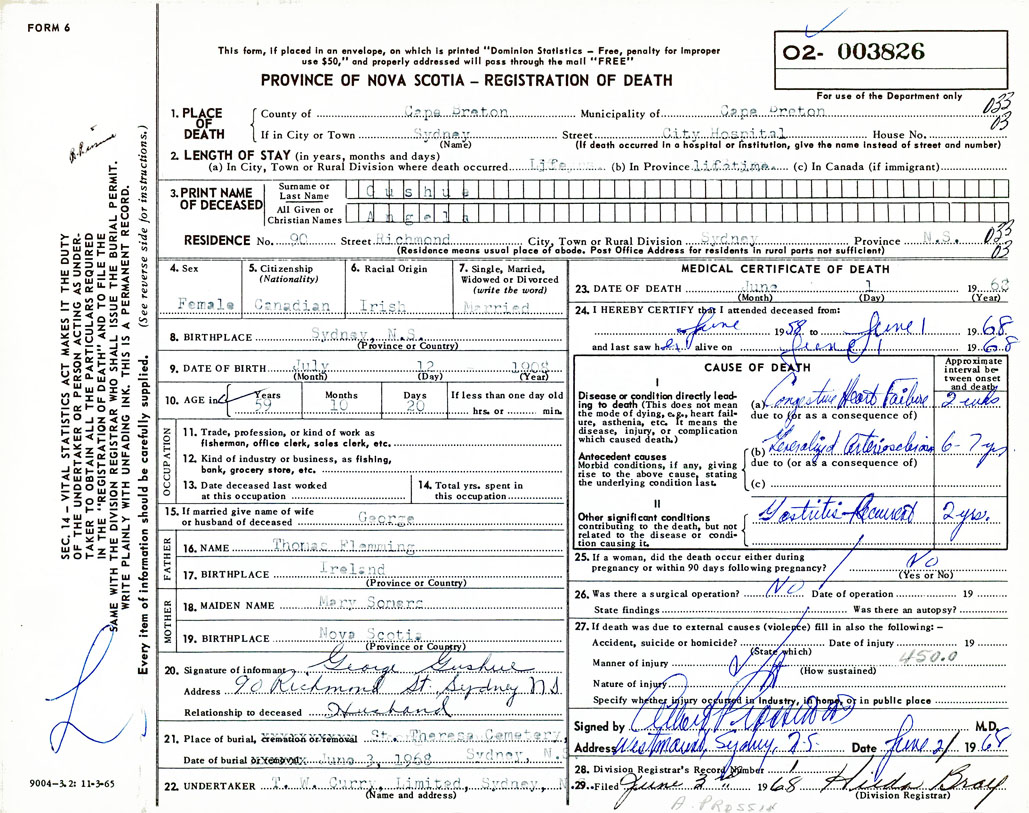 FORM 6
This form, if placed in an envelope, on which is printed "Dominion Statistics - Free, penalty for improper
use $50," and properly addressed will pass through the mail "FREE"
PROVINCE OF NOVA SCOTIA - REGISTRATION OF DEATH
02- 003826
For use of the Department only
1. PLACE OF DEATH County of Cape Breton Municipality of Cape Breton 033 03
If in City or Town Sydney Street City Hospital House No.
(Name) (If death occurred in a hospital or institution, give the name instead of street and number)
2. LENGTH OF STAY (in years, months and days)
(a) In City, Town or Rural Division where death occurred Life (b) In Province lifetime (c) In Canada (if immigrant)
3. PRINT NAME OF DECEASED Surname or Last Name Gushue
All Given or Christian Names Angela
RESIDENCE No. 90 Street Richmond City, Town or Rural Division Sydney Province N.S. 033 03
(Residence means usual place of abode. Post Office Address for residents in rural parts not sufficient)
4. Sex Female
5. Citizenship (Nationality) Canadian
6. Racial Origin Irish
7. Single, Married, Widowed or Divorced (write the word) Married
8. BIRTHPLACE Sydney, N.S.
(Province or Country)
9. DATE OF BIRTH July 12 1908
(Month) (Day) (Year)
10. AGE in Years 59 Months 10 Days 20 If less than one day old
hrs. or min.
OCCUPATION
11. Trade, profession, or kind of work as
fisherman, office clerk, sales clerk, etc.
12. Kind of industry or business, as fishing,
bank, grocery store, etc.
13. Date deceased last worked
at this occupation
14. Total yrs. spent in
this occupation
15. If married give name of wife
or husband of deceased George
FATHER
16. NAME Thomas Flemming
17. BIRTHPLACE Ireland
(Province or Country)
MOTHER
18. MAIDEN NAME Mary Somers
19. BIRTHPLACE Nova Scotia
(Province or Country)
20. Signature of informant George Gushue
Address 90 Richmond St, Sydney NS
Relationship to deceased Husband
21. Place of burial, cremation or removal St. Theresa Cemetery,
Sydney, N.S
Date of burial or removal June 3, 1968
22. UNDERTAKER T. W. Curry, Limited, Sydney, N
(Name and address)
MEDICAL CERTIFICATE OF DEATH
23. DATE OF DEATH June 1 1968
(Month) (Day) (Year)
24. I HEREBY CERTIFY that I attended deceased from:
June 1958 to June 1 1968
and last saw her alive on June 1 1968
CAUSE OF DEATH
Approximate interval between onset and death
I
Disease or condition directly leading to death (This does not mean
the mode of dying, e.g., heart failure, asthenia, etc. It means the
disease, injury, or complication
which caused death.)
(a) Congestive Heart Failure 2 wks
due to (or as a consequence of)
Antecedent causes
Morbid conditions, if any, giving
rise to the above cause, stating
the underlying condition last.
(b) Generalized Arteriosclerosis 6-7 yrs
due to (or as a consequence of)
(c)
II
Other significant conditions
contributing to the death, but not
related to the disease or condition causing it.
Gastritis - Recurrent 2 yrs.
25. If a woman, did the death occur either during
pregnancy or within 90 days following pregnancy? No
(Yes or No)
26. Was there a surgical operation? NO Date of operation 19
State findings Was there an autopsy?
27. If death was due to external causes (violence) fill in also the following: -
Accident, suicide or homicide? Date of injury 19
(State which) 450.0
Manner of injury
(How sustained)
Nature of injury
Specify whether injury occurred in industry, in home, or in public place
Signed by M.D.
Address Westmount, Sydney, N.S. Date June 2/ 1968
28. Division Registrar's Record Number 1
29. Filed June 3rd 1968 Hilda Bray
(Division Registrar)
A. PROSSIN
SEC. 14 - VITAL STATISTICS ACT MAKES IT THE DUTY
OF THE UNDERTAKER OR PERSON ACTING AS UNDERTAKER TO OBTAIN ALL THE PARTICULARS REQUIRED
IN THE "REGISTRATION OF DEATH" AND TO FILE THE
SAME WITH THE DIVISION REGISTRAR WHO SHALL ISSUE THE BURIAL PERMIT.
WRITE PLAINLY WITH UNFADING INK. THIS IS A PERMANENT RECORD.
Every item of information should be carefully supplied. (See reverse side for instructions.)
9004-3.2: 11-3-65